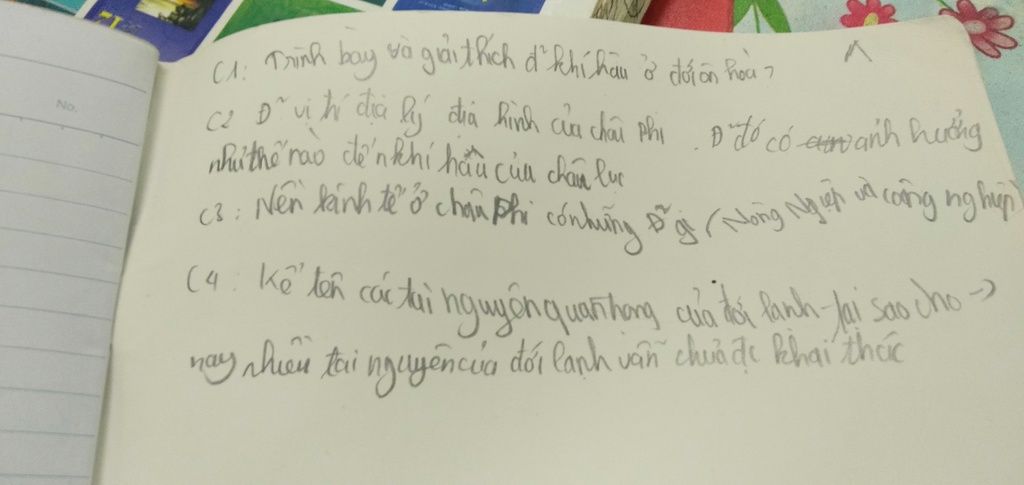 No.
C1: Trình bày và giải thích đ² khí hâu ở đới ôn hoà ?
C2 Đ² vị trí địa lý địa hình của châu phi . Đ² đó có ảnh hưởng
như thế nào đến khí hậu của châu lục
C3: Nền kinh tế ở châu phi có những Đ² gì ( Nông Nghiệp và công nghiệp
C4: Kể tên các tài nguyên quan trọng của đới lạnh - tại sao cho ->
nay nhiều tài nguyên của đới lạnh vẫn chưa đc khai thác